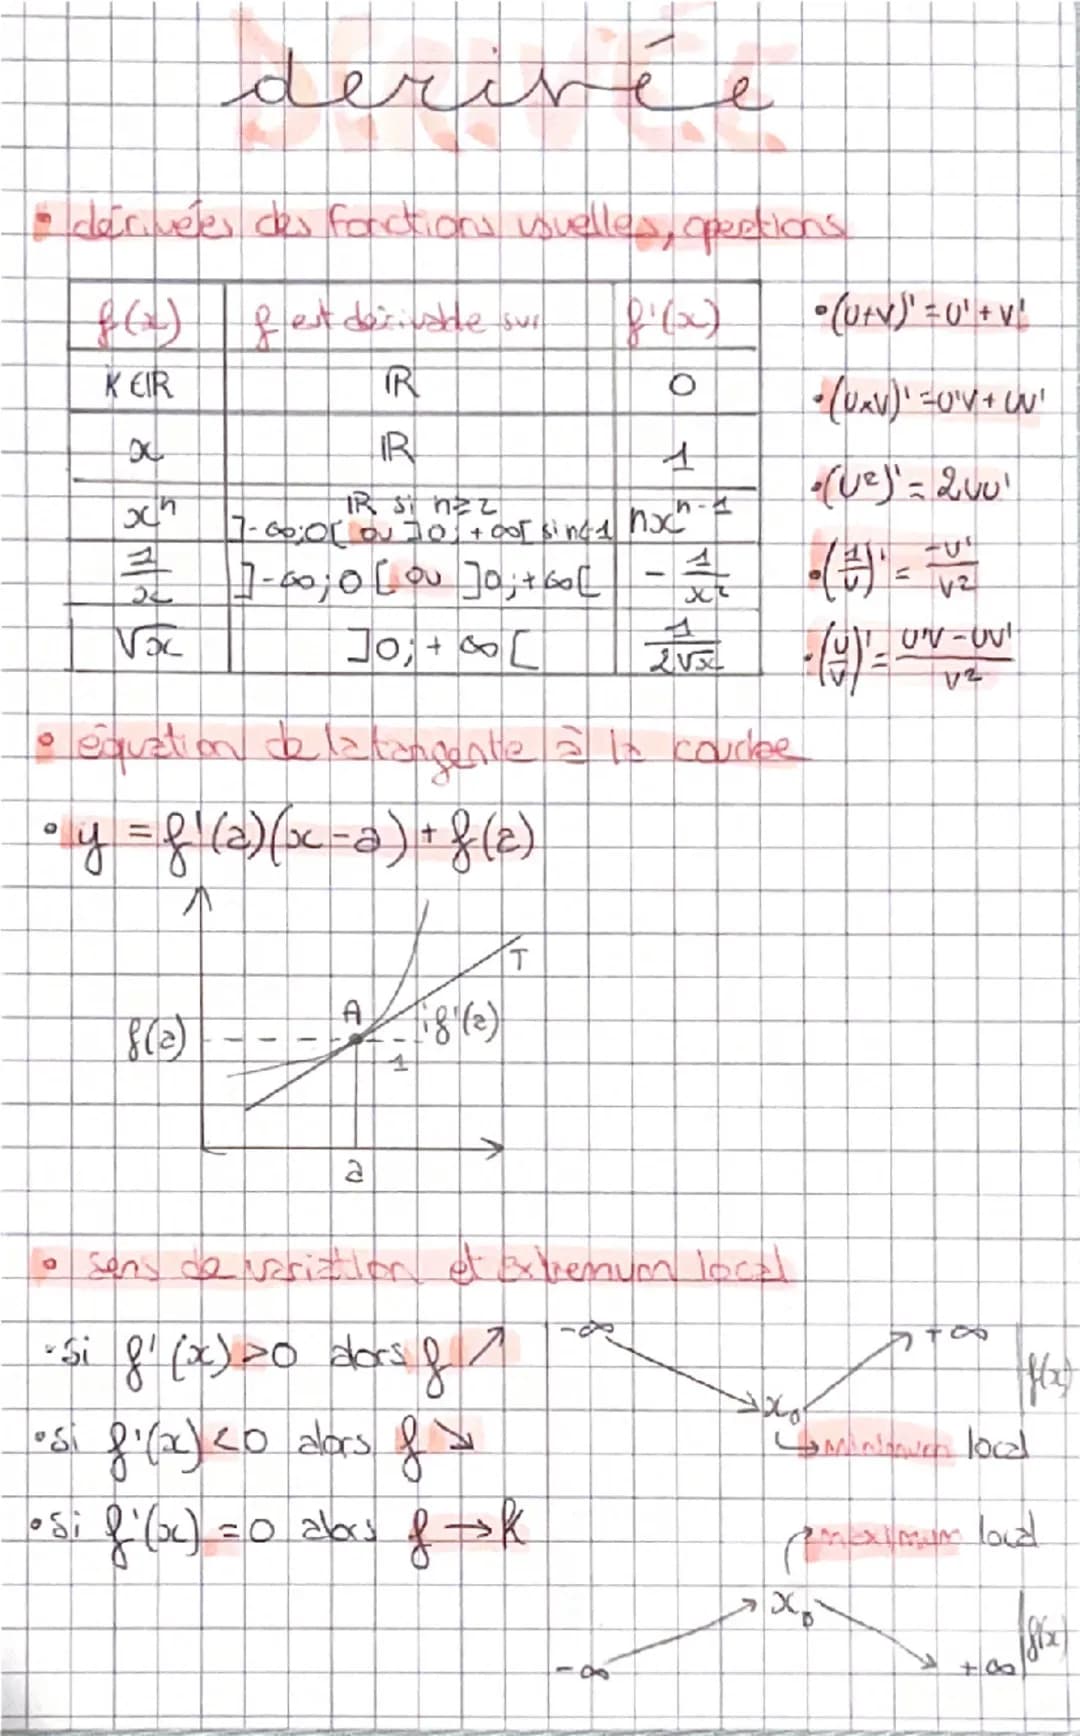 DÉRIVÉE
derivée
• dérivées des fonctions usuelles, opertions
f(x) f est dérivable sur f'(x)
K ∈ IR IR 0
x IR 1
xⁿ IR si n≥2 ]-∞;0[ ou ]0;+∞[ si n≤-1 nxⁿ⁻¹
1/x ]-∞;0[ ou ]0;+∞[ -1/x²
√x ]0;+∞[ 1/2√x
•(U+V)'=U'+V'
•(U×V)'=U'V+UV'
•(U²)'=2UU'
•(1/V)'=-V'/V²
•(U/V)'=U'V-UV'/V²
• équation de la tangente à la courbe
• y = f'(a)(x-a)+f(a)
T
A
f(a)
f'(a)
1
a
• sens de variation et extremum local
•si f'(x)>0 alors f ↗
•si f'(x)<0 alors f ↘
•si f'(x)=0 alors f → k
-∞ +∞ f(x)
x₀
↳minimum local
maximum local
x₀
-∞ +∞ f(x)